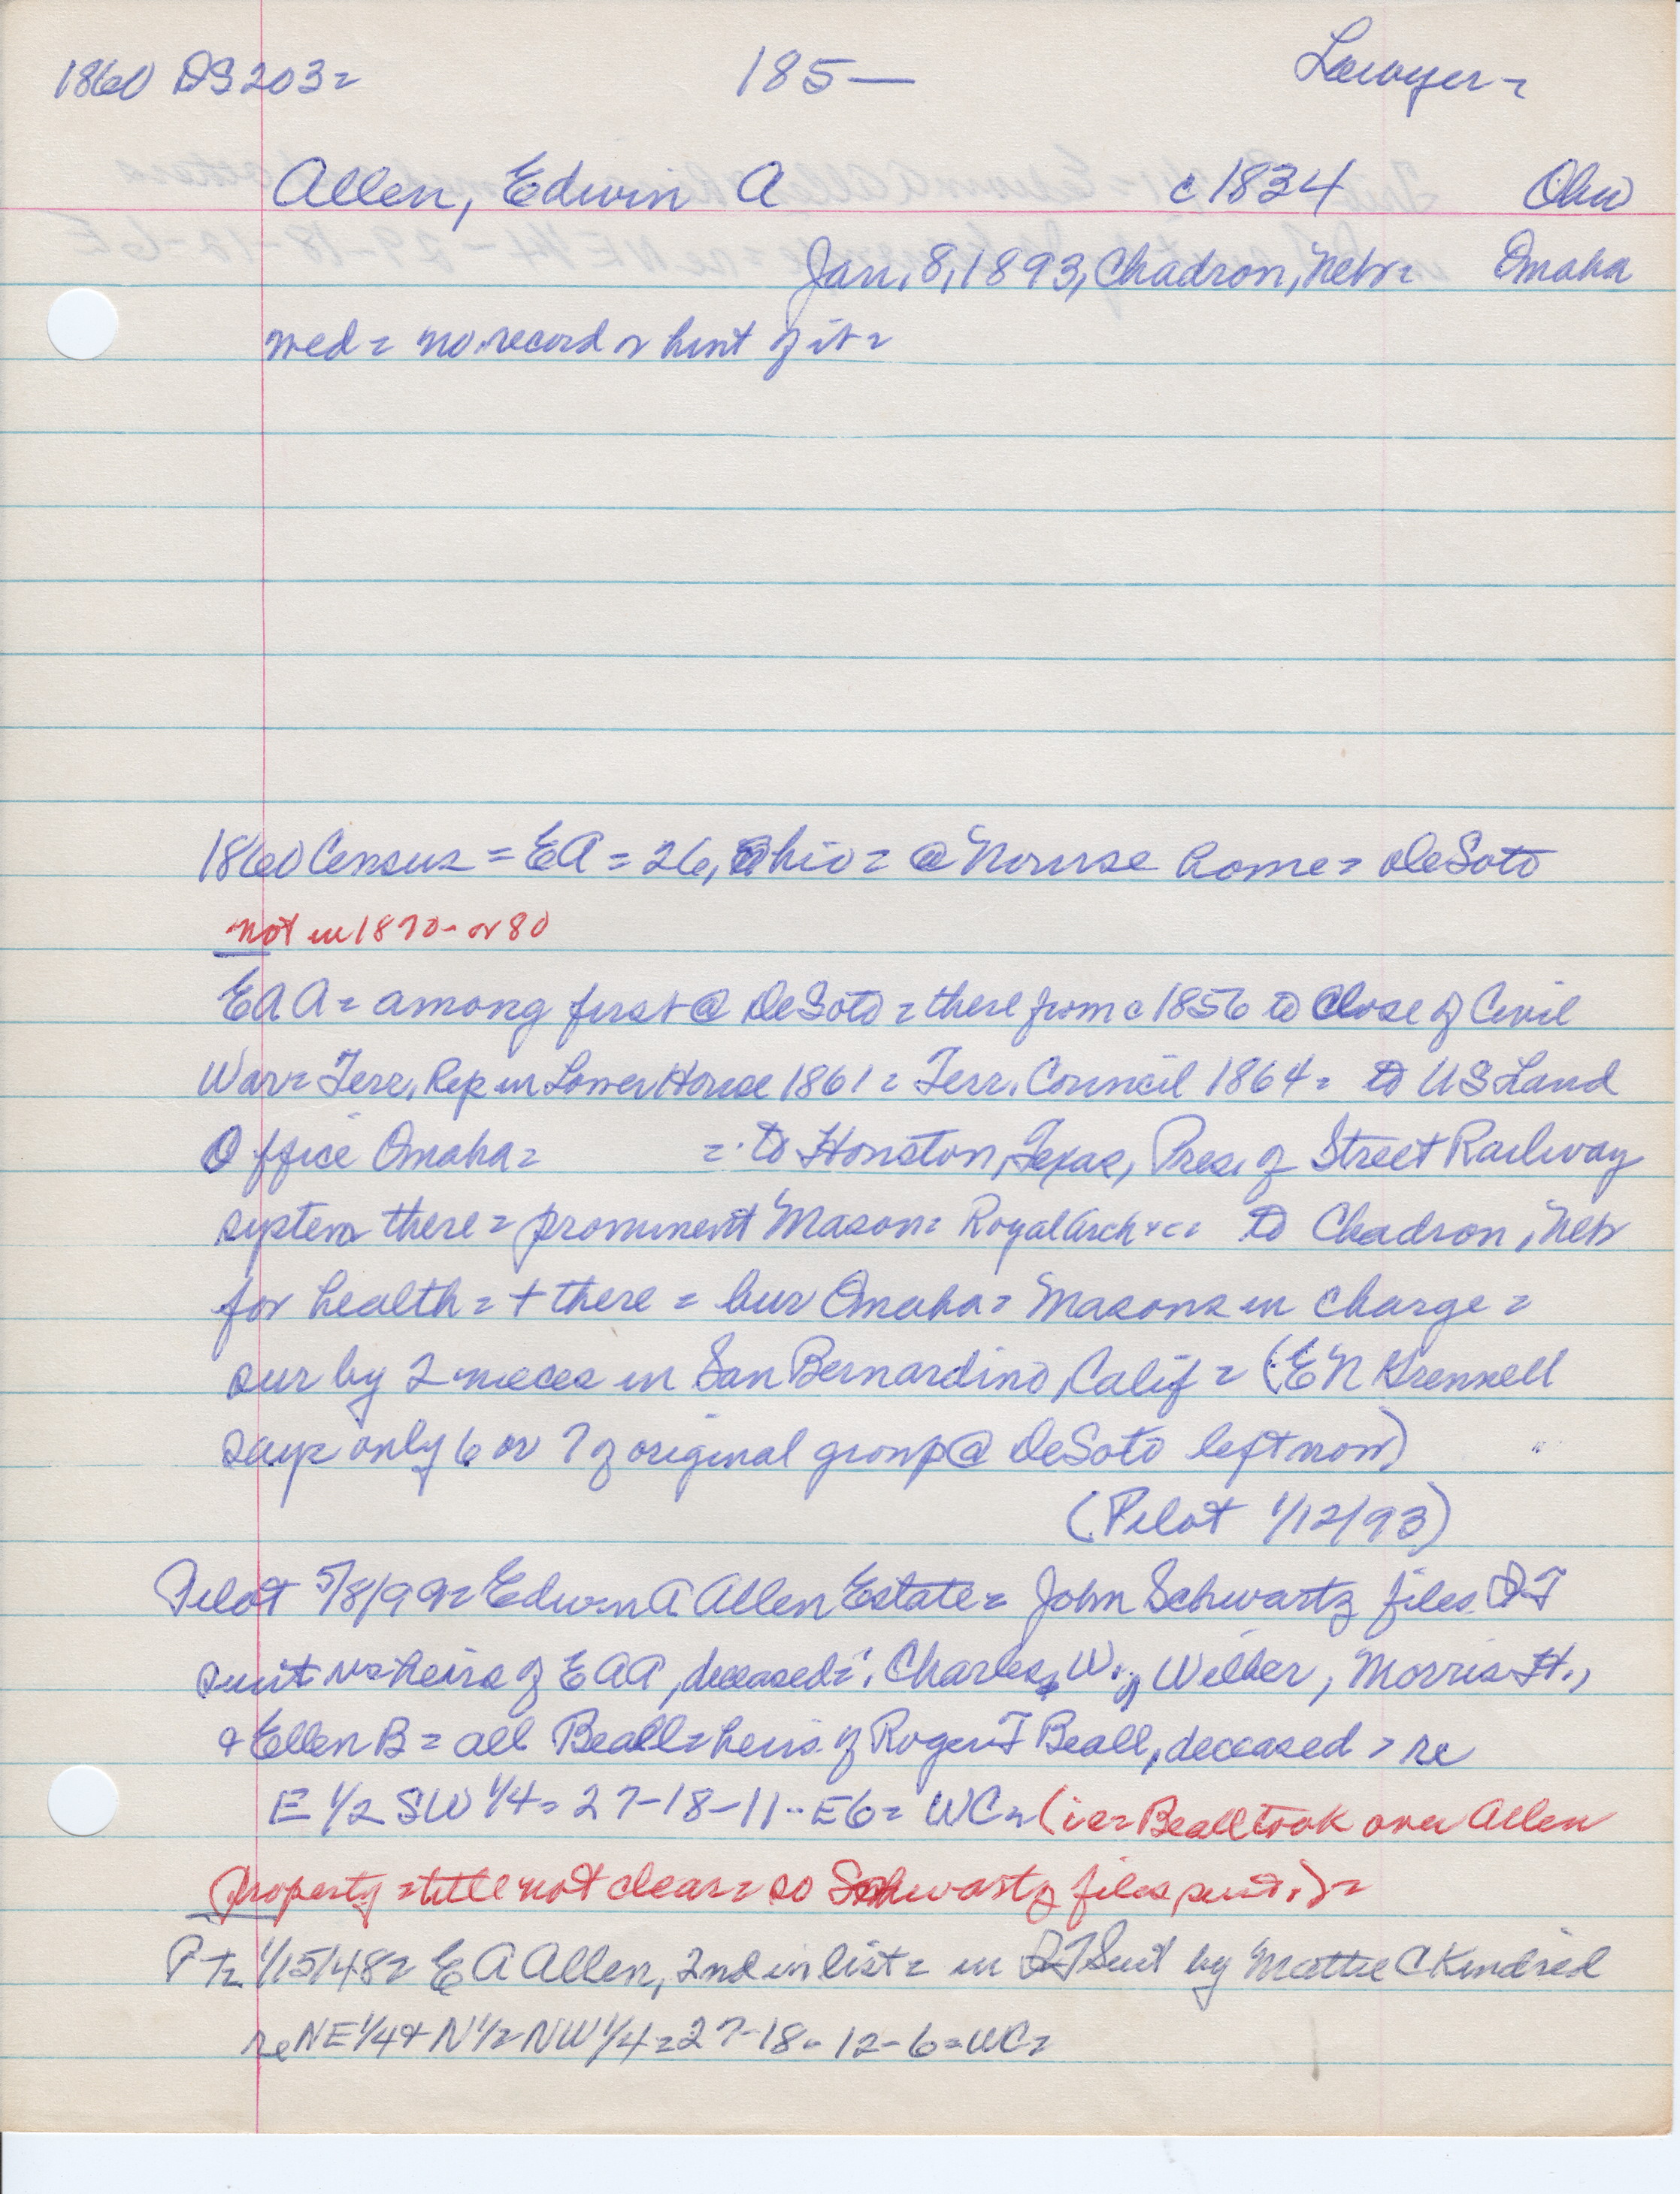 1860 DS203= 185— Lawyer=
Allen, Edwin A c1834 Ohio
Jan, 8, 1893, Chadron, Nebr= Omaha
wed = no record or hint of it=
1860 Census = EA = 26, Ohio = @ Nourse home = DeSoto
not in 1870 - or 80
EAA = among first @ DeSoto = there from c 1856 to Close of Civil
War = Terr. Rep in Lower House 1861 = Terr. Council 1864 = to US Land
Office Omaha = = to Houston, Texas, Pres. of Street Railway
system there = prominent Mason = Royal Arch = to Chadron, Nebr
for health = + there = bur Omaha = Masons in charge =
sur by 2 nieces in San Bernardino, Calif = (E N Grennell
says only 6 or 7 of original group @ DeSoto left now)
(Pilot 1/12/93)
Pilot 5/8/99 = Edwin A Allen Estate = John Schwartz files QT
suit vs heirs of EAA, deceased = Charles, W., Wilber, Morris H.,
& Ellen B = all Beall = heirs of Roger T Beall, deceased > re
E 1/2 SW 1/4 = 27-18-11-E6 = WC= (ie = Beall took over Allen
property = title not clear = so Schwartz files suit.)=
PT= 1/15/48 = E A Allen, 2nd in list = in QT Suit by Mattie C Kindred
re NE 1/4 + N 1/2 NW 1/4 = 27-18-12-6 = WC=